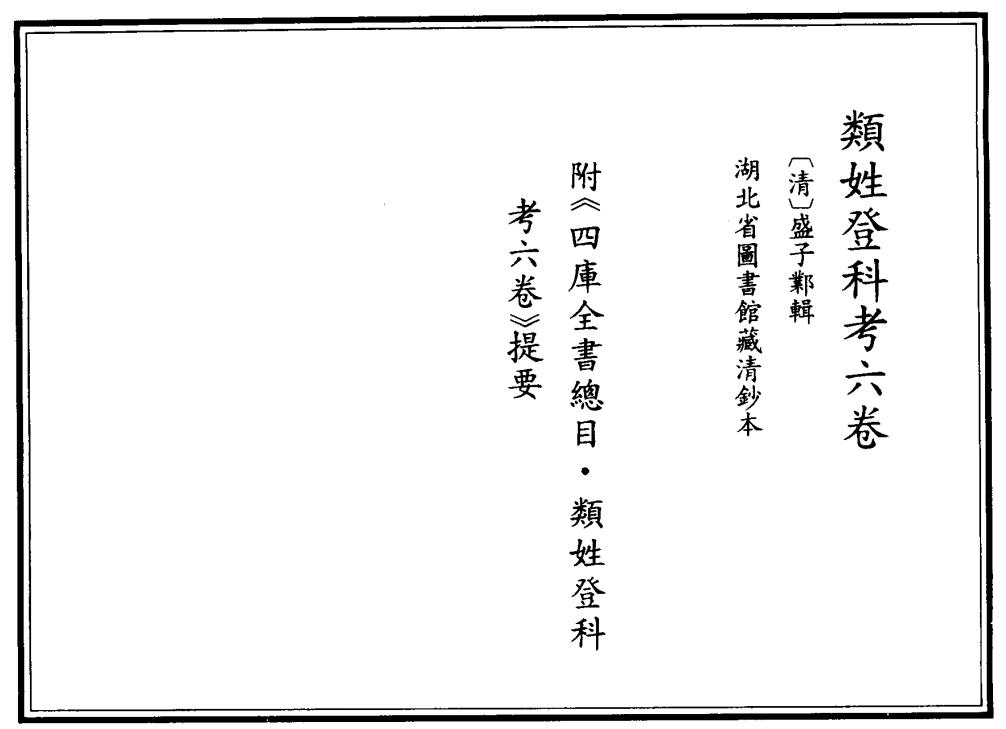 類姓登科考六卷
〔清〕盛子鄴輯
湖北省圖書館藏清鈔本
附《四庫全書總目·類姓登科
考六卷》提要